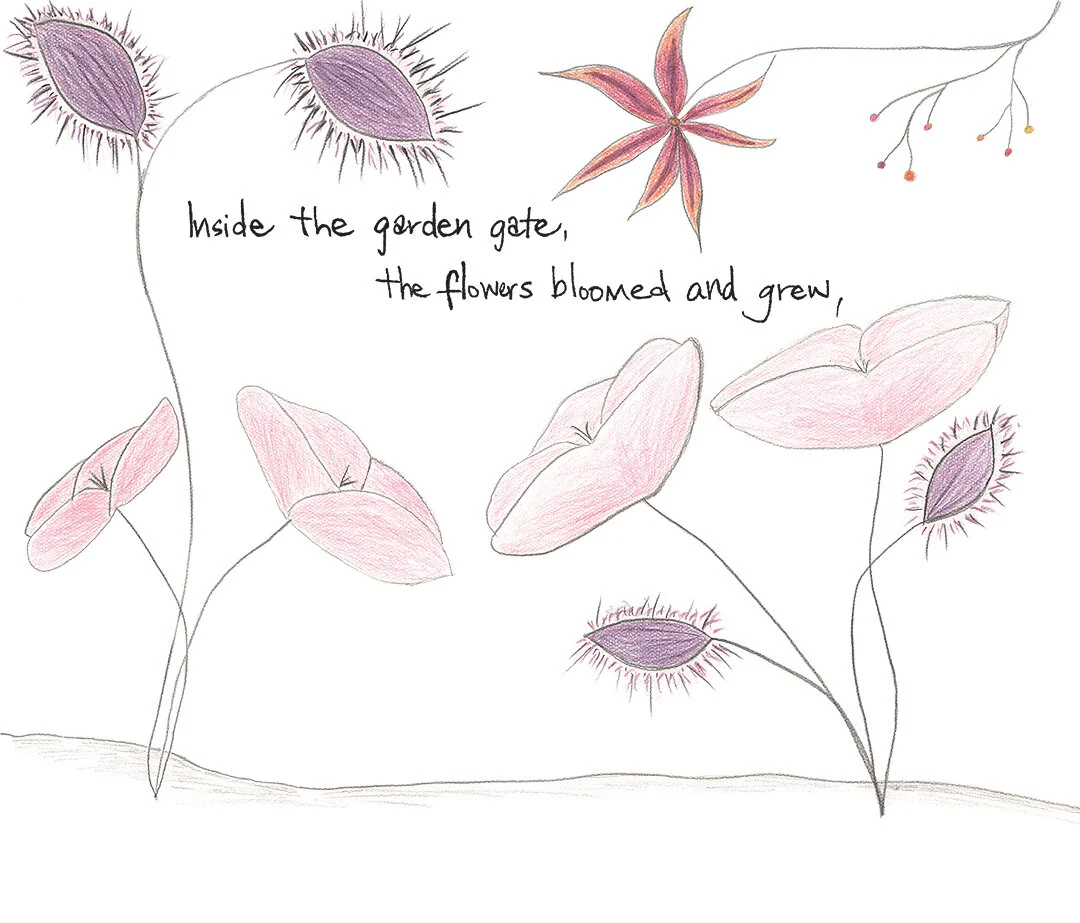 Inside the garden gate,
the flowers bloomed and grew,